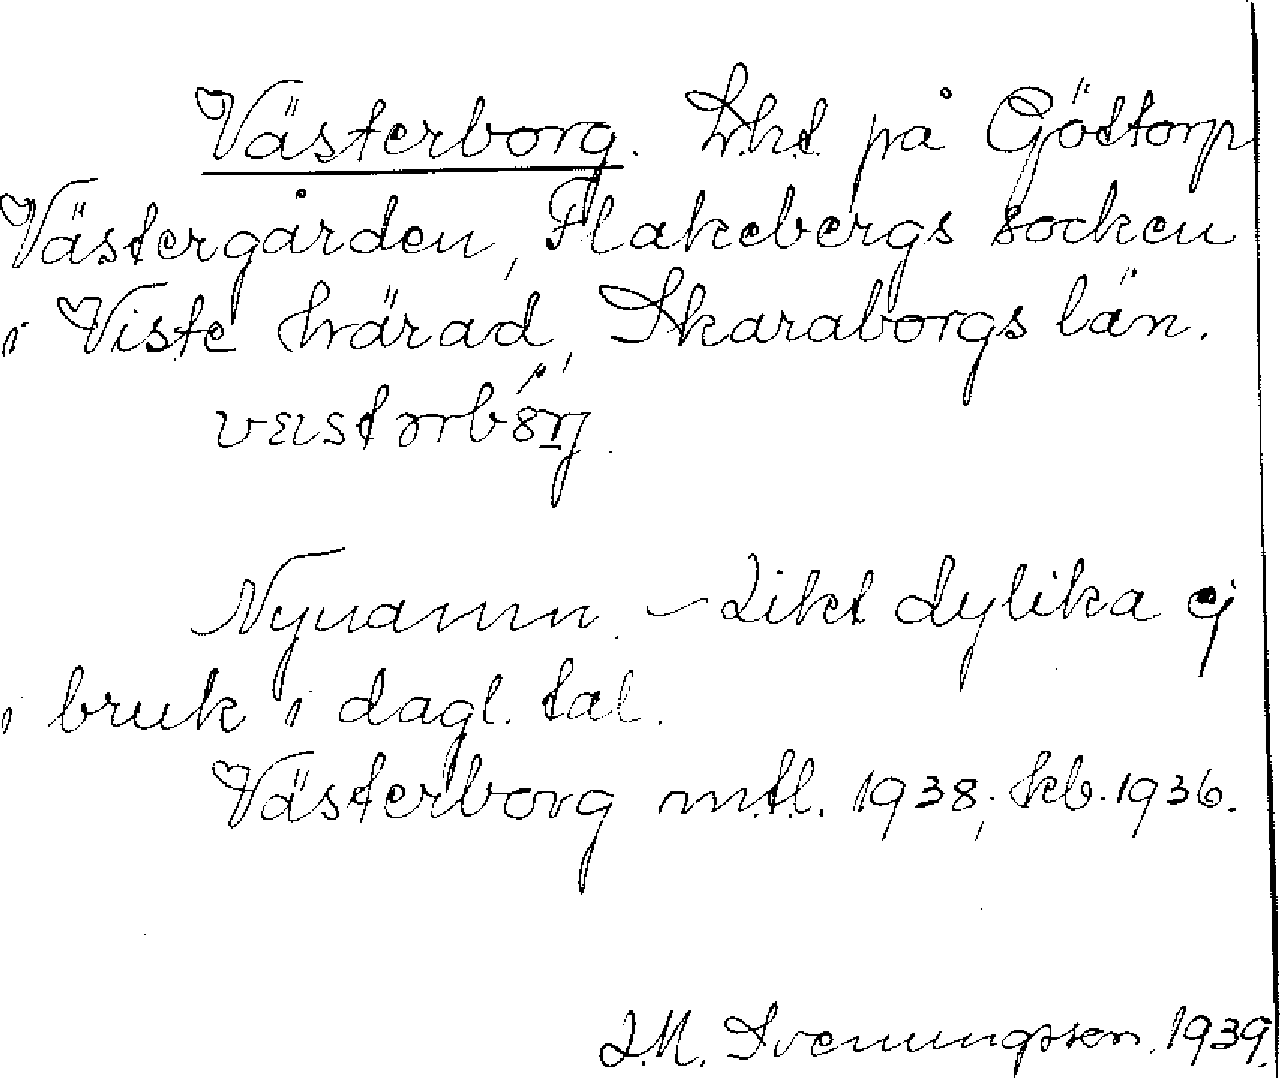 Västerborg. Lht på Göttorp
Västergården, Flakebergs socken
i Viste härad, Skaraborgs län.
Nynamn. – Likt dylika ej
i bruk i dagl. tal.
Västerborg mtl. 1938; kb. 1936.
J.M. Svenungsson. 1939.